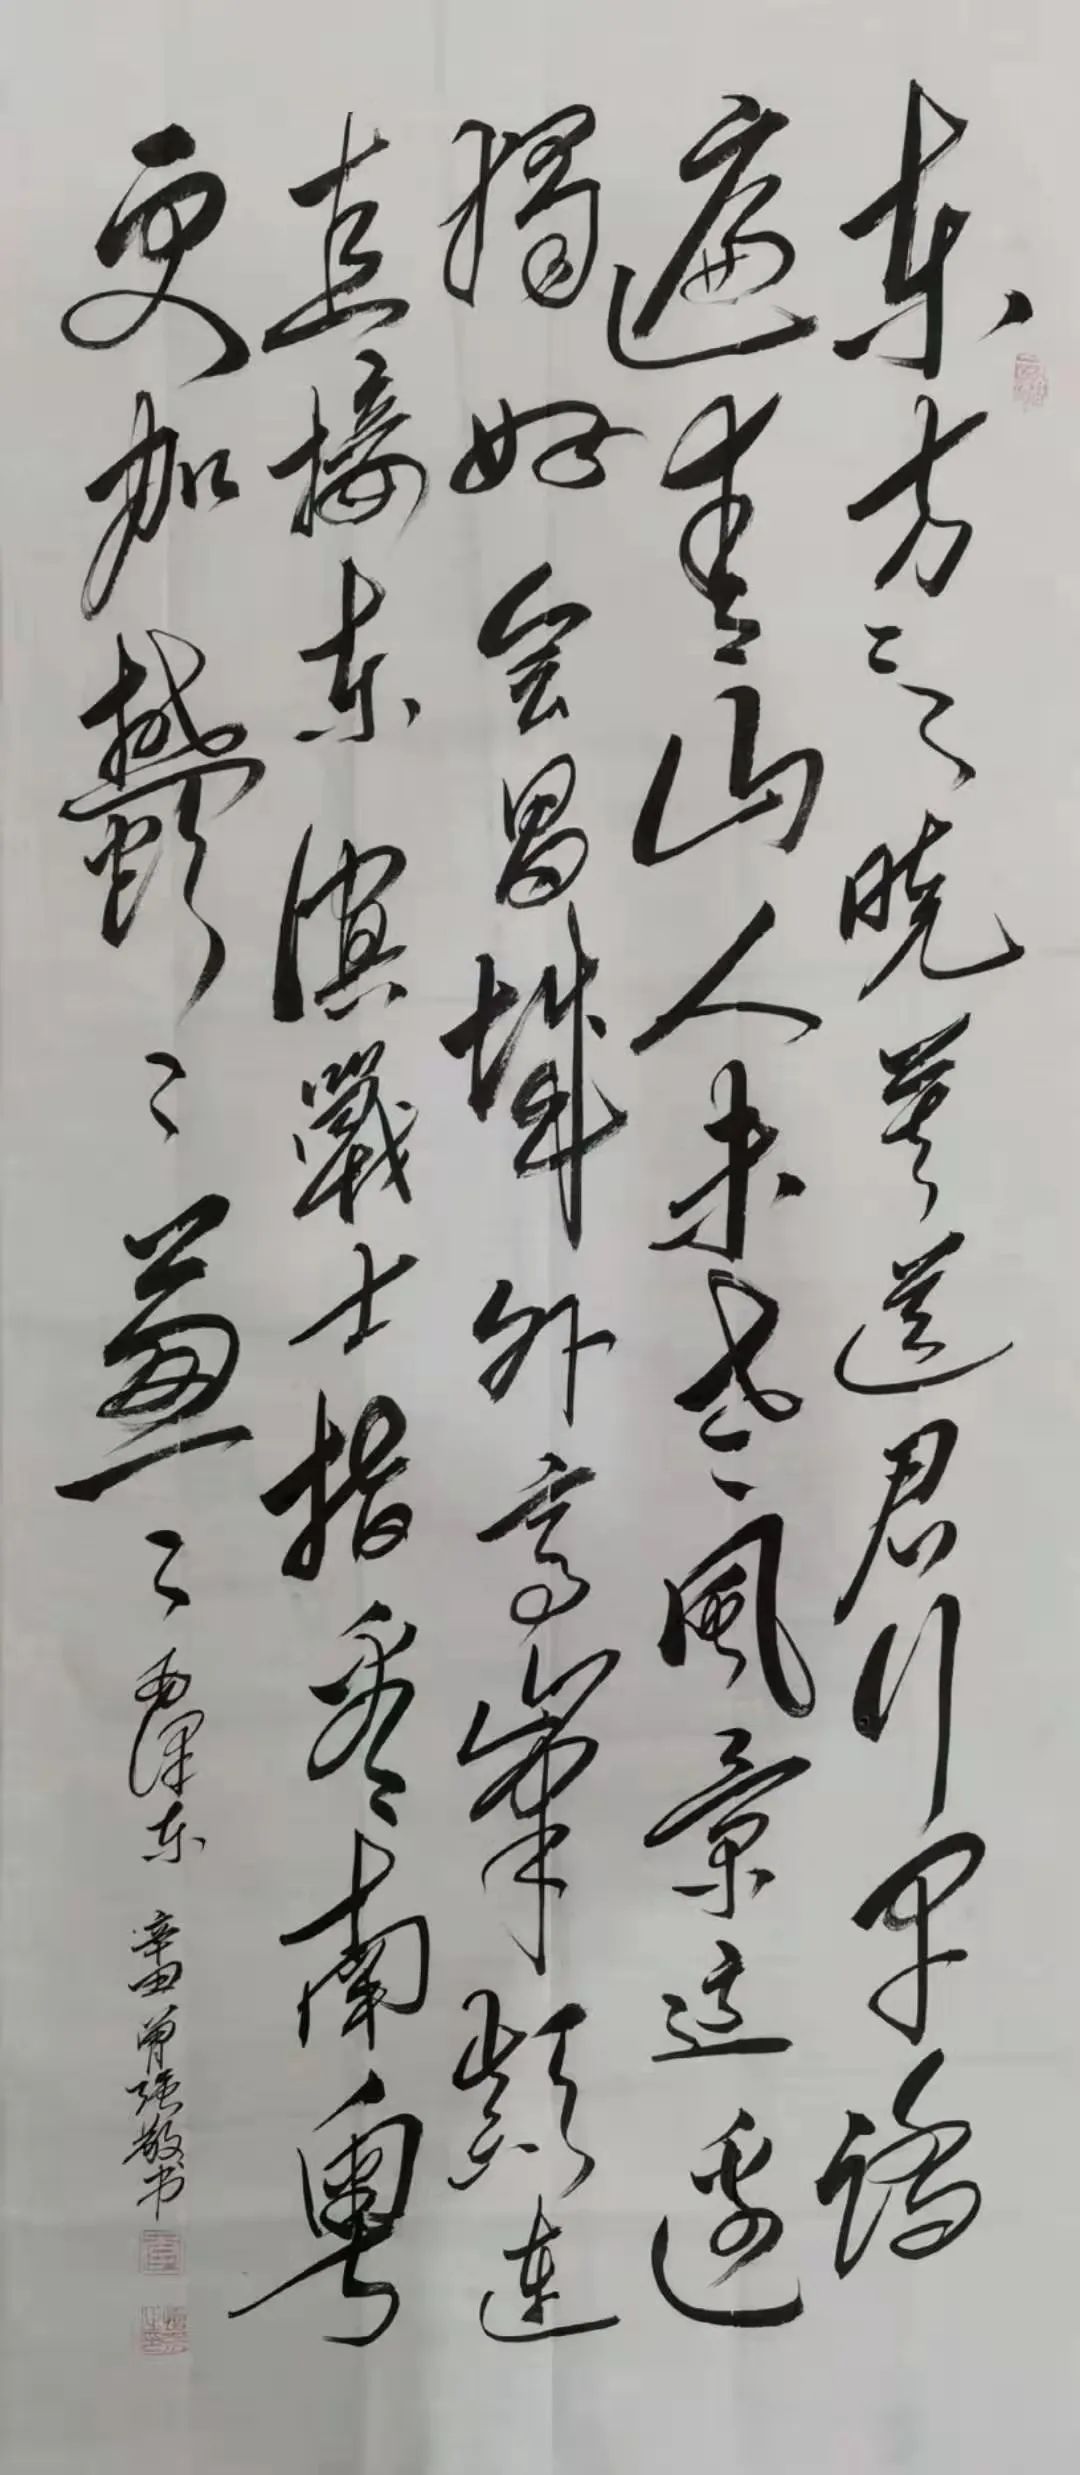 东方欲晓莫道君行早踏
遍青山人未老風景这邊
獨好会昌城外高峯顛連
直接东溟戰士指看南粤
更加鬱〻葱〻 毛泽东 辛丑曾强敬书